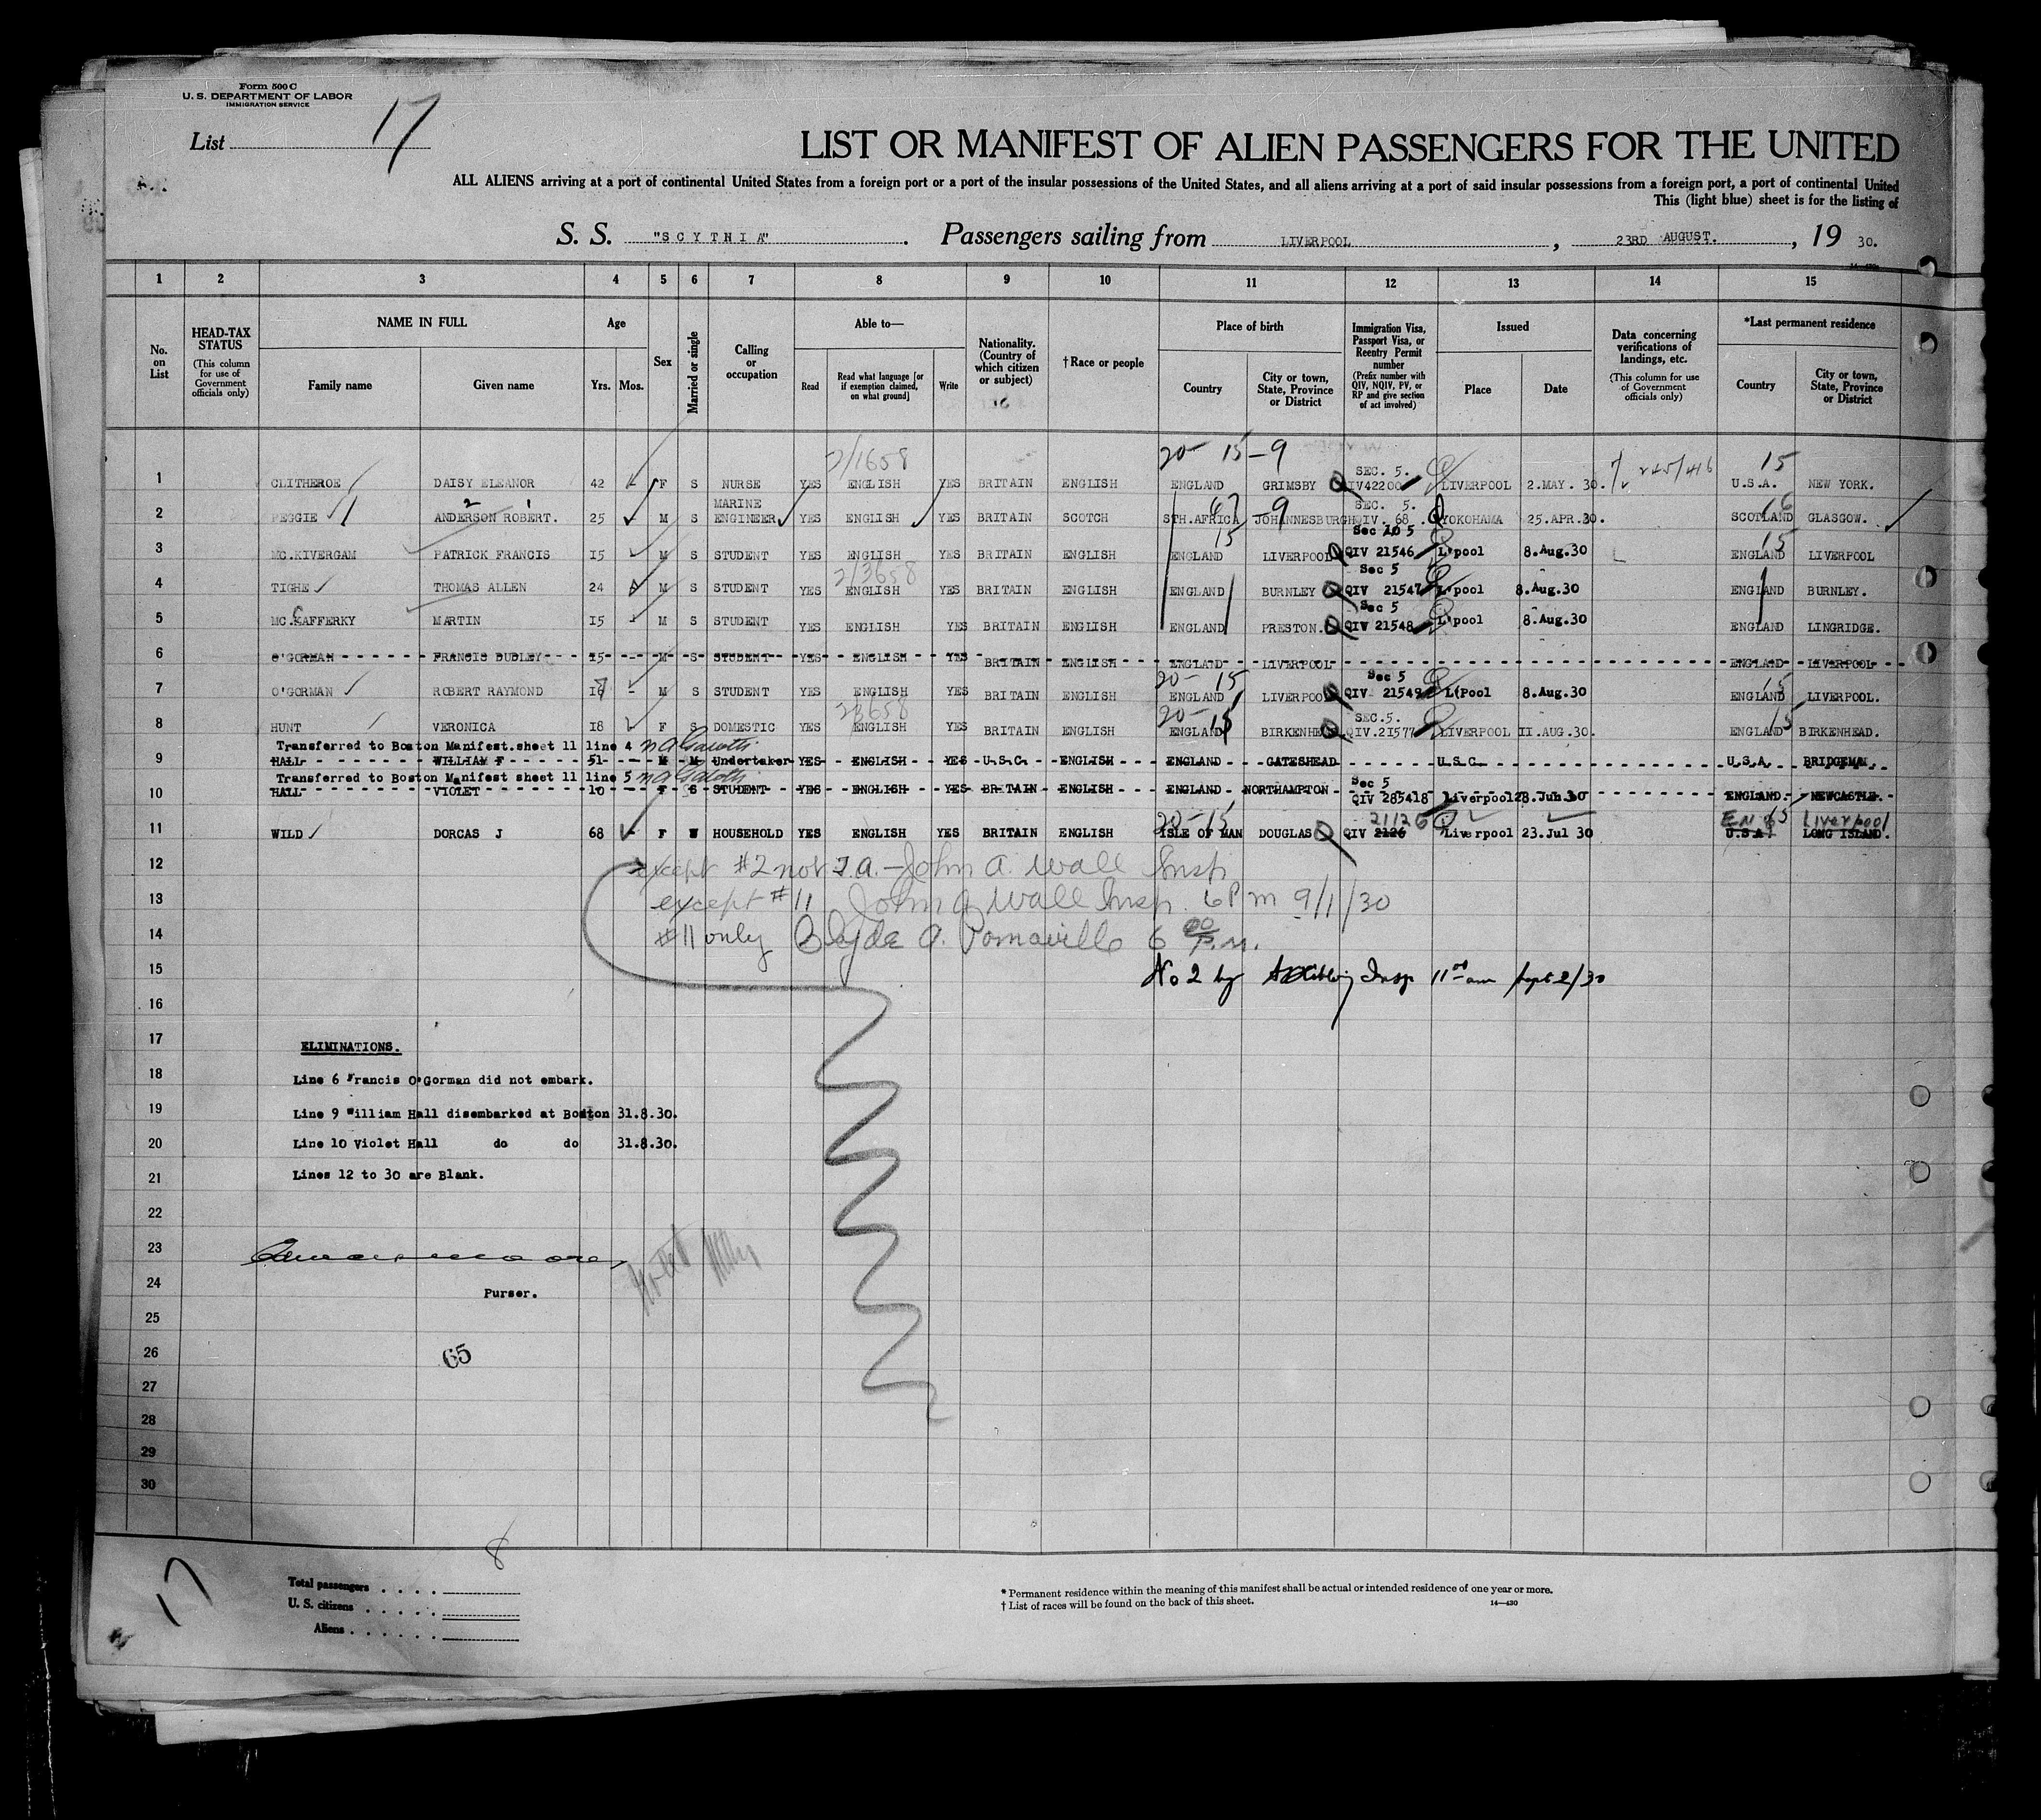 Form 500 C
U. S. DEPARTMENT OF LABOR
IMMIGRATION SERVICE
List 17
LIST OR MANIFEST OF ALIEN PASSENGERS FOR THE UNITED
ALL ALIENS arriving at a port of continental United States from a foreign port or a port of the insular possessions of the United States, and all aliens arriving at a port of said insular possessions from a foreign port, a port of continental United
This (light blue) sheet is for the listing of
S. S. "SCYTHIA". Passengers sailing from LIVERPOOL, 23RD AUGUST., 19 30.
1 2 3 4 5 6 7 8 9 10 11 12 13 14 15
No. on List
HEAD-TAX STATUS (This column for use of Government officials only)
NAME IN FULL Family name Given name
Age Yrs. Mos.
Sex
Married or single
Calling or occupation
Able to— Read Read what language [or if exemption claimed, on what ground] Write
Nationality. (Country of which citizen or subject)
†Race or people
Place of birth Country City or town, State, Province or District
Immigration Visa, Passport Visa, or Reentry Permit number (Prefix number with QIV, NQIV, PV, or RP and give section of act involved)
Issued Place Date
Data concerning verifications of landings, etc. (This column for use of Government officials only)
*Last permanent residence Country City or town, State, Province or District
2/1658 20- 15-9 SEC. 5. 15
1 CLITHEROE DAISY ELEANOR 42 - F S NURSE YES ENGLISH YES BRITAIN ENGLISH ENGLAND GRIMSBY QIV42200 LIVERPOOL 2.MAY. 30. U.S.A. NEW YORK.
2 1 MARINE SEC. 5.
2 PEGGIE ANDERSON ROBERT. 25 - M S ENGINEER YES ENGLISH YES BRITAIN SCOTCH STH.AFRICA JOHANNESBURG QIV. 68 YOKOHAMA 25.APR.30. SCOTLAND GLASGOW.
15 Sec 5 15
3 MC.KIVERGAM PATRICK FRANCIS 15 - M S STUDENT YES ENGLISH YES BRITAIN ENGLISH ENGLAND LIVERPOOL QIV 21546 L'pool 8.Aug.30 ENGLAND LIVERPOOL
2/3658 Sec 5
4 TIGHE THOMAS ALLEN 24 M S STUDENT YES ENGLISH YES BRITAIN ENGLISH ENGLAND BURNLEY QIV 21547 L'pool 8.Aug.30 ENGLAND BURNLEY.
Sec 5
5 MC.CAFFERKY MARTIN 15 - M S STUDENT YES ENGLISH YES BRITAIN ENGLISH ENGLAND PRESTON. QIV 21548 L'pool 8.Aug.30 ENGLAND LINGRIDGE.
6 O'GORMAN FRANCIS DUDLEY 15 - M S STUDENT YES ENGLISH YES BRITAIN ENGLISH ENGLAND LIVERPOOL ENGLAND LIVERPOOL
20- 15 Sec 5 15
7 O'GORMAN ROBERT RAYMOND 17 - M S STUDENT YES ENGLISH YES BRITAIN ENGLISH ENGLAND LIVERPOOL QIV 21549 L(Pool 8.Aug.30 ENGLAND LIVERPOOL.
20- 15 SEC.5. 15
8 HUNT VERONICA 18 F S DOMESTIC YES ENGLISH YES BRITAIN ENGLISH ENGLAND BIRKENHEAD QIV.21577 LIVERPOOL II.AUG.30. ENGLAND BIRKENHEAD.
Transferred to Boston Manifest.sheet 11 line 4
9 HALL WILLIAM F 51 - M M Undertaker YES ENGLISH YES U.S.C. ENGLISH ENGLAND GATESHEAD U.S.C. U.S.A. BRIDGEMAN.
Transferred to Boston Manifest sheet 11 line 5
10 HALL VIOLET 10 - F S STUDENT YES ENGLISH YES BRITAIN ENGLISH ENGLAND NORTHAMPTON Sec 5 QIV 285418 Liverpool 28.Jun.30 ENGLAND. NEWCASTLE.
20-15 21126 ENG 15 Liverpool
11 WILD DORCAS J 68 - F W HOUSEHOLD YES ENGLISH YES BRITAIN ENGLISH ISLE OF MAN DOUGLAS QIV 2126 Liverpool 23.Jul 30 U.S.A. LONG ISLAND.
12 except #2 not I.A. - John A. Wall Insp
13 except #11 John A Wall Insp. 6 P m 9/1/30
14 #11 only Clyde A. 6 00 P.M.
15 No 2 by Insp 11 00 am Sept 2/30
16
17 ELIMINATIONS.
18 Line 6 Francis O'Gorman did not embark.
19 Line 9 William Hall disembarked at Boston 31.8.30.
20 Line 10 Violet Hall do do 31.8.30.
21 Lines 12 to 30 are Blank.
22
23
24 Purser.
25
26 65
27
28
29
30
8
17
Total passengers
U. S. citizens
Aliens
* Permanent residence within the meaning of this manifest shall be actual or intended residence of one year or more.
† List of races will be found on the back of this sheet.
14—430